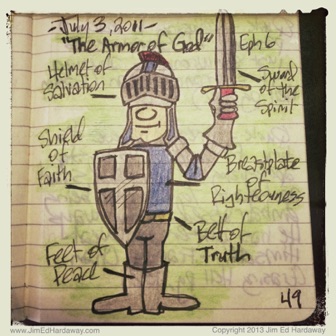 -July 3, 2011-
"The Armor of God"
Eph 6
Helmet of
Salvation
Sword
of the
Spirit
Shield
of
Faith
Breastplate
of
Righteousness
Belt of
Truth
Feet of
Peace
49
www.JimEdHardaway.com
Copyright 2013 Jim Ed Hardaway